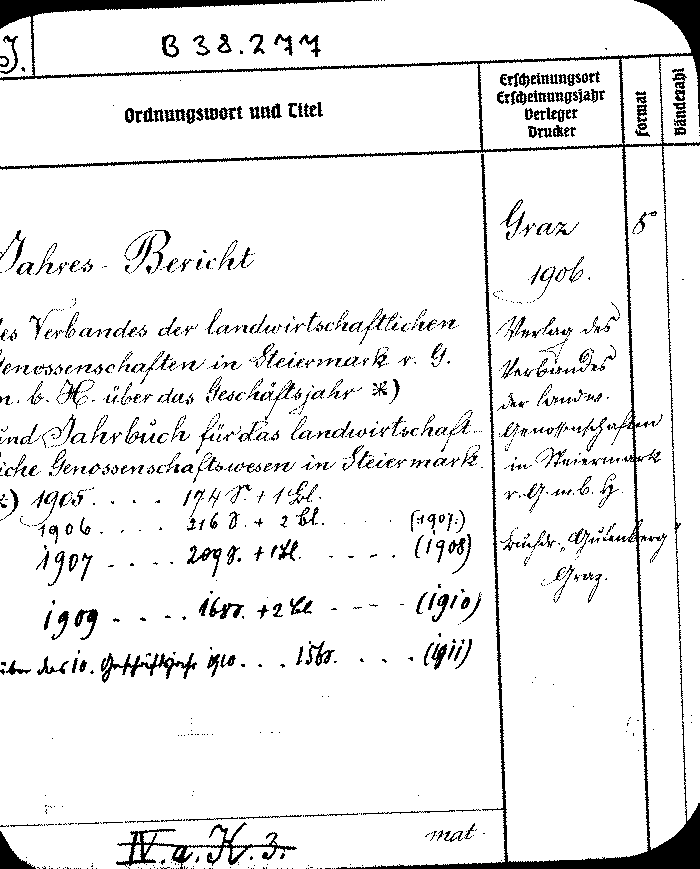 J.
B 38.277
Ordnungswort und Titel
Erscheinungsort
Erscheinungsjahr
Verleger
Drucker
Format
Bändezahl
Jahres-Bericht
des Verbandes der landwirtschaftlichen
Genossenschaften in Steiermark r. G.
m. b. H. über das Geschäftsjahr *)
und Jahrbuch für das landwirtschaft-
liche Genossenschaftswesen in Steiermark.
*) 1905 . . . . 174 S. + 1 Bl.
1906 . . . . 216 S. + 2 Bl. . . . . (1907.)
1907 . . . . 209 S. + 1 Bl. . . . . (1908)
1909 . . . . 168 S. + 2 Bl . . . . (1910)
über das 10. Geschäftsjahr 1910 . . . 156 S. . . . . (1911)
Graz
1906.
Verlag des
Verbandes
der landw.
Genossenschaften
in Steiermark
r. G. m. b. H.
Buchdr. „Gutenberg"
Graz.
8
IV. a. K. 3.
mat.